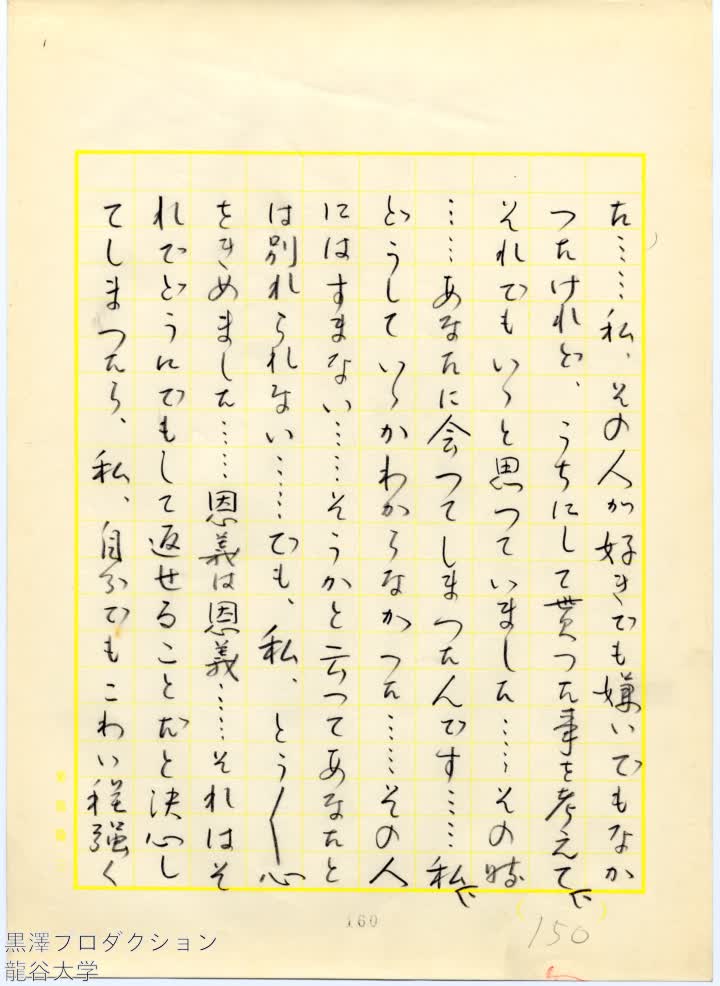 た……私、その人が好きでも嫌いでもなか
つたけれど、うちにして貰つた事を考えて、
それでもいゝと思つていました……その時
……あなたに会つてしまつたんです……私、
どうしていゝかわからなかつた……その人
にはすまない……そうかと云つてあなたと
は別れられない……でも、私、とう〱心
をきめました……恩義は恩義……それはそ
れでどうにでもして返せることだと決心し
てしまつたら、私、自分でもこわい程強く
160
150
黒澤プロダクション
龍谷大学